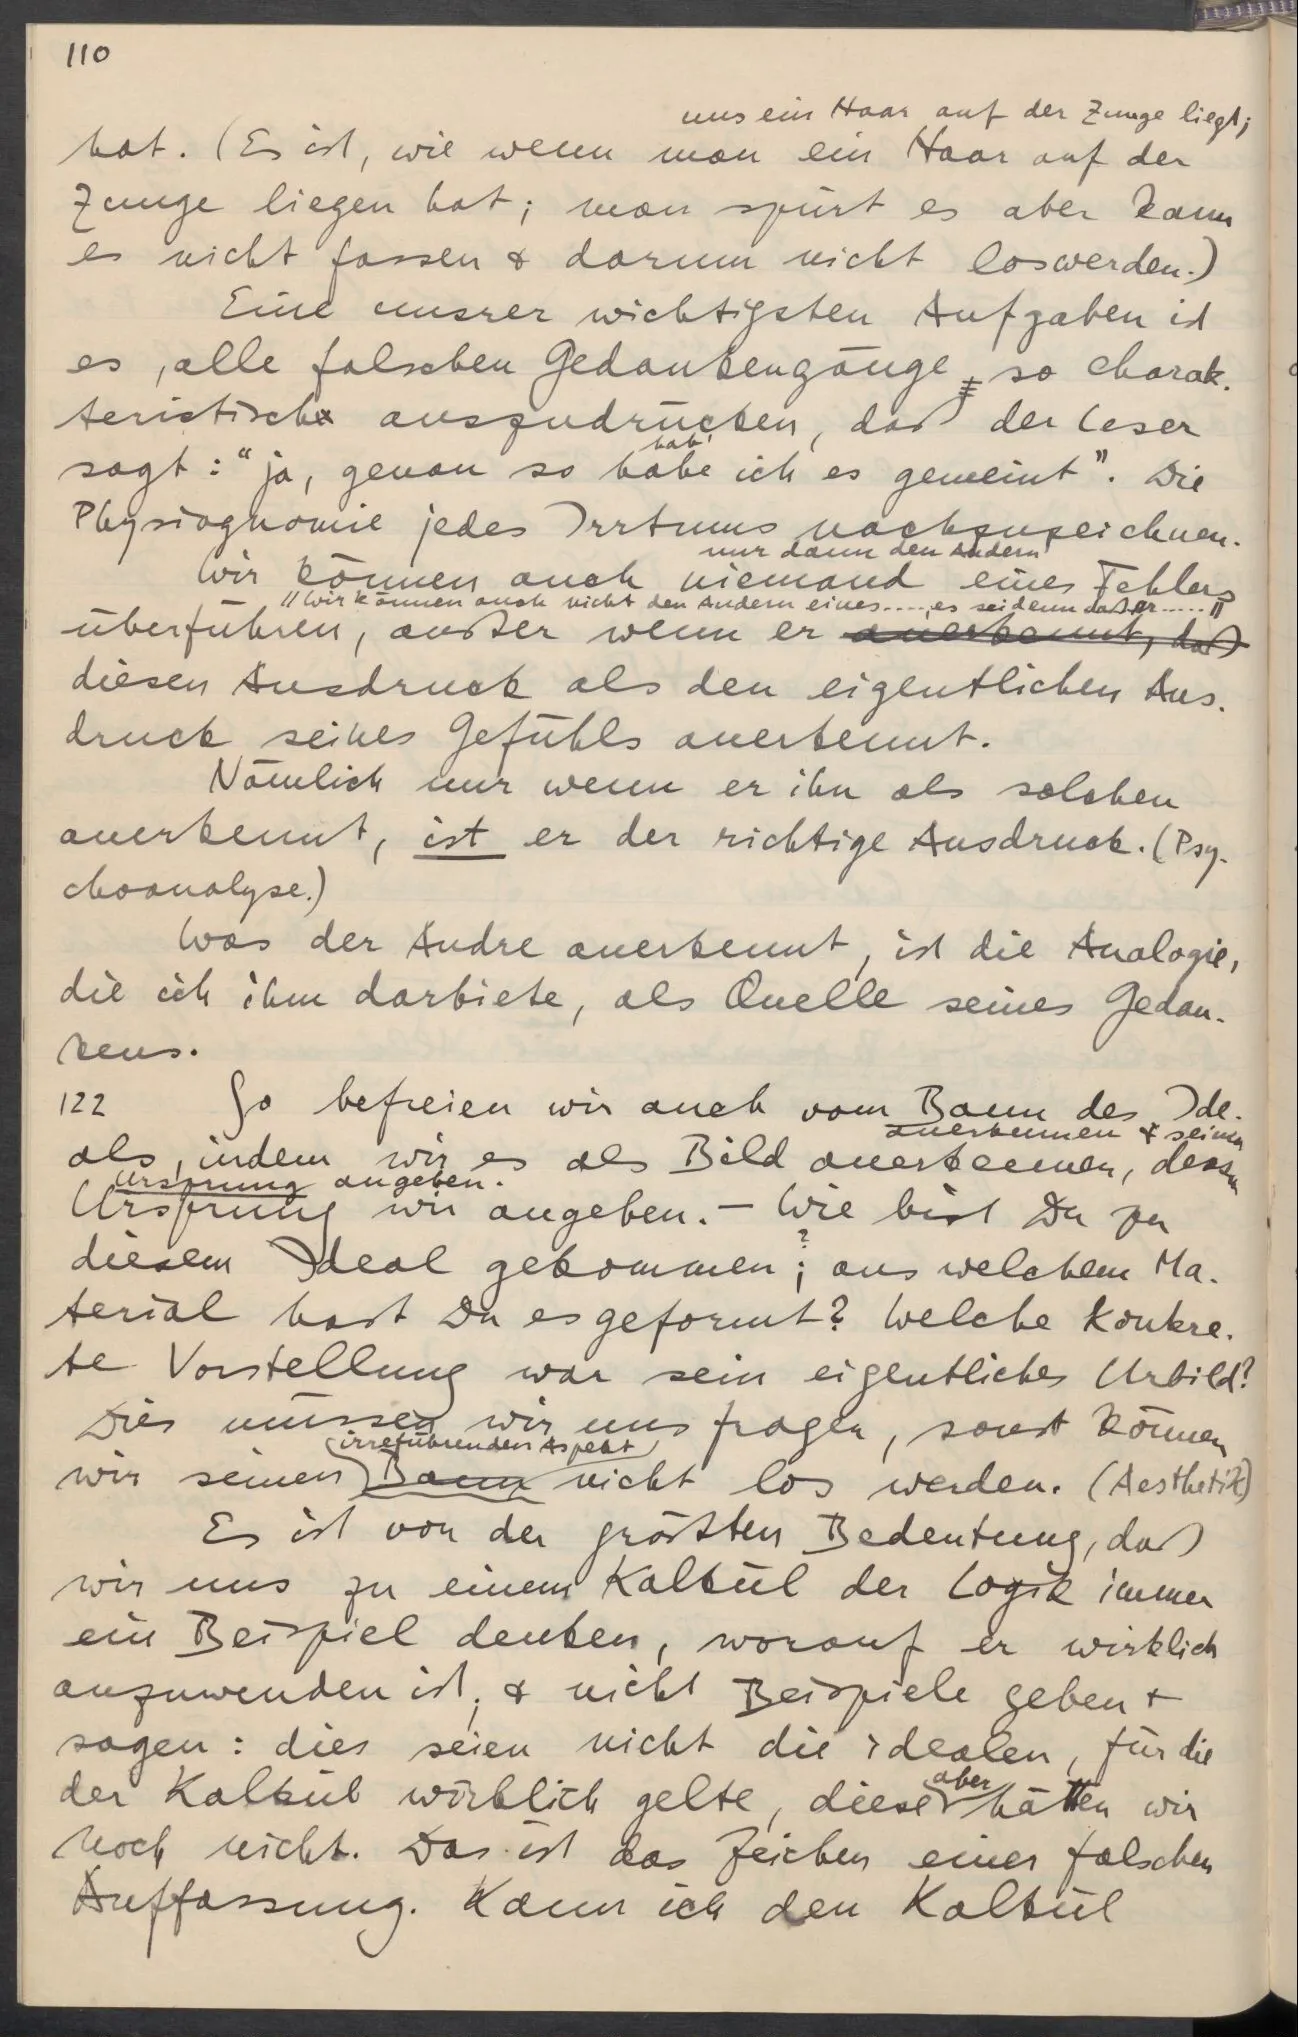 110
uns ein Haar auf der Zunge liegt;
hat. (Es ist, wie wenn man ein Haar auf der
Zunge liegen hat; man spürt es aber kann
es nicht fassen & darum nicht loswerden.)
Eine unsrer wichtigsten Aufgaben ist
es, alle falschen Gedankengänge so charak-
teristisch auszudrücken, daß der Leser
hab'
sagt: "ja, genau so habe ich es gemeint". Die
Physiognomie jedes Irrtums nachzuzeichnen.
nur dann den Andern
Wir können auch niemand eines Fehlers
"Wir können auch nicht den Andern eines ...., es sei denn daß er ....."
überführen, außer wenn er anerkennt, daß
diesen Ausdruck als den eigentlichen Aus-
druck seines Gefühls anerkennt.
Nämlich nur wenn er ihn als solchen
anerkennt, ist er der richtige Ausdruck. (Psy-
choanalyse.)
Was der Andre anerkennt, ist die Analogie,
die ich ihm darbiete, als Quelle seines Gedan-
kens.
122 So befreien wir auch vom Bann des Ide-
anerkennen & seinen
als, indem wir es als Bild anerkennen, dessen
Ursprung angeben.
Ursprung wir angeben. – Wie bist Du zu
diesem Ideal gekommen;? aus welchem Ma-
terial hast Du es geformt? Welche konkre-
te Vorstellung war sein eigentliches Urbild?
Dies müssen wir uns fragen, sonst können
irreführenden Aspekt
wir seinen Bann nicht los werden. (Aesthetik)
Es ist von der größten Bedeutung, daß
wir uns zu einem Kalkül der Logik immer
ein Beispiel denken, worauf er wirklich
anzuwenden ist, & nicht Beispiele geben +
sagen: dies seien nicht die idealen, für die
aber
der Kalkül wirklich gelte, diese hätten wir
noch nicht. Das ist das Zeichen einer falschen
Auffassung. Kann ich den Kalkül